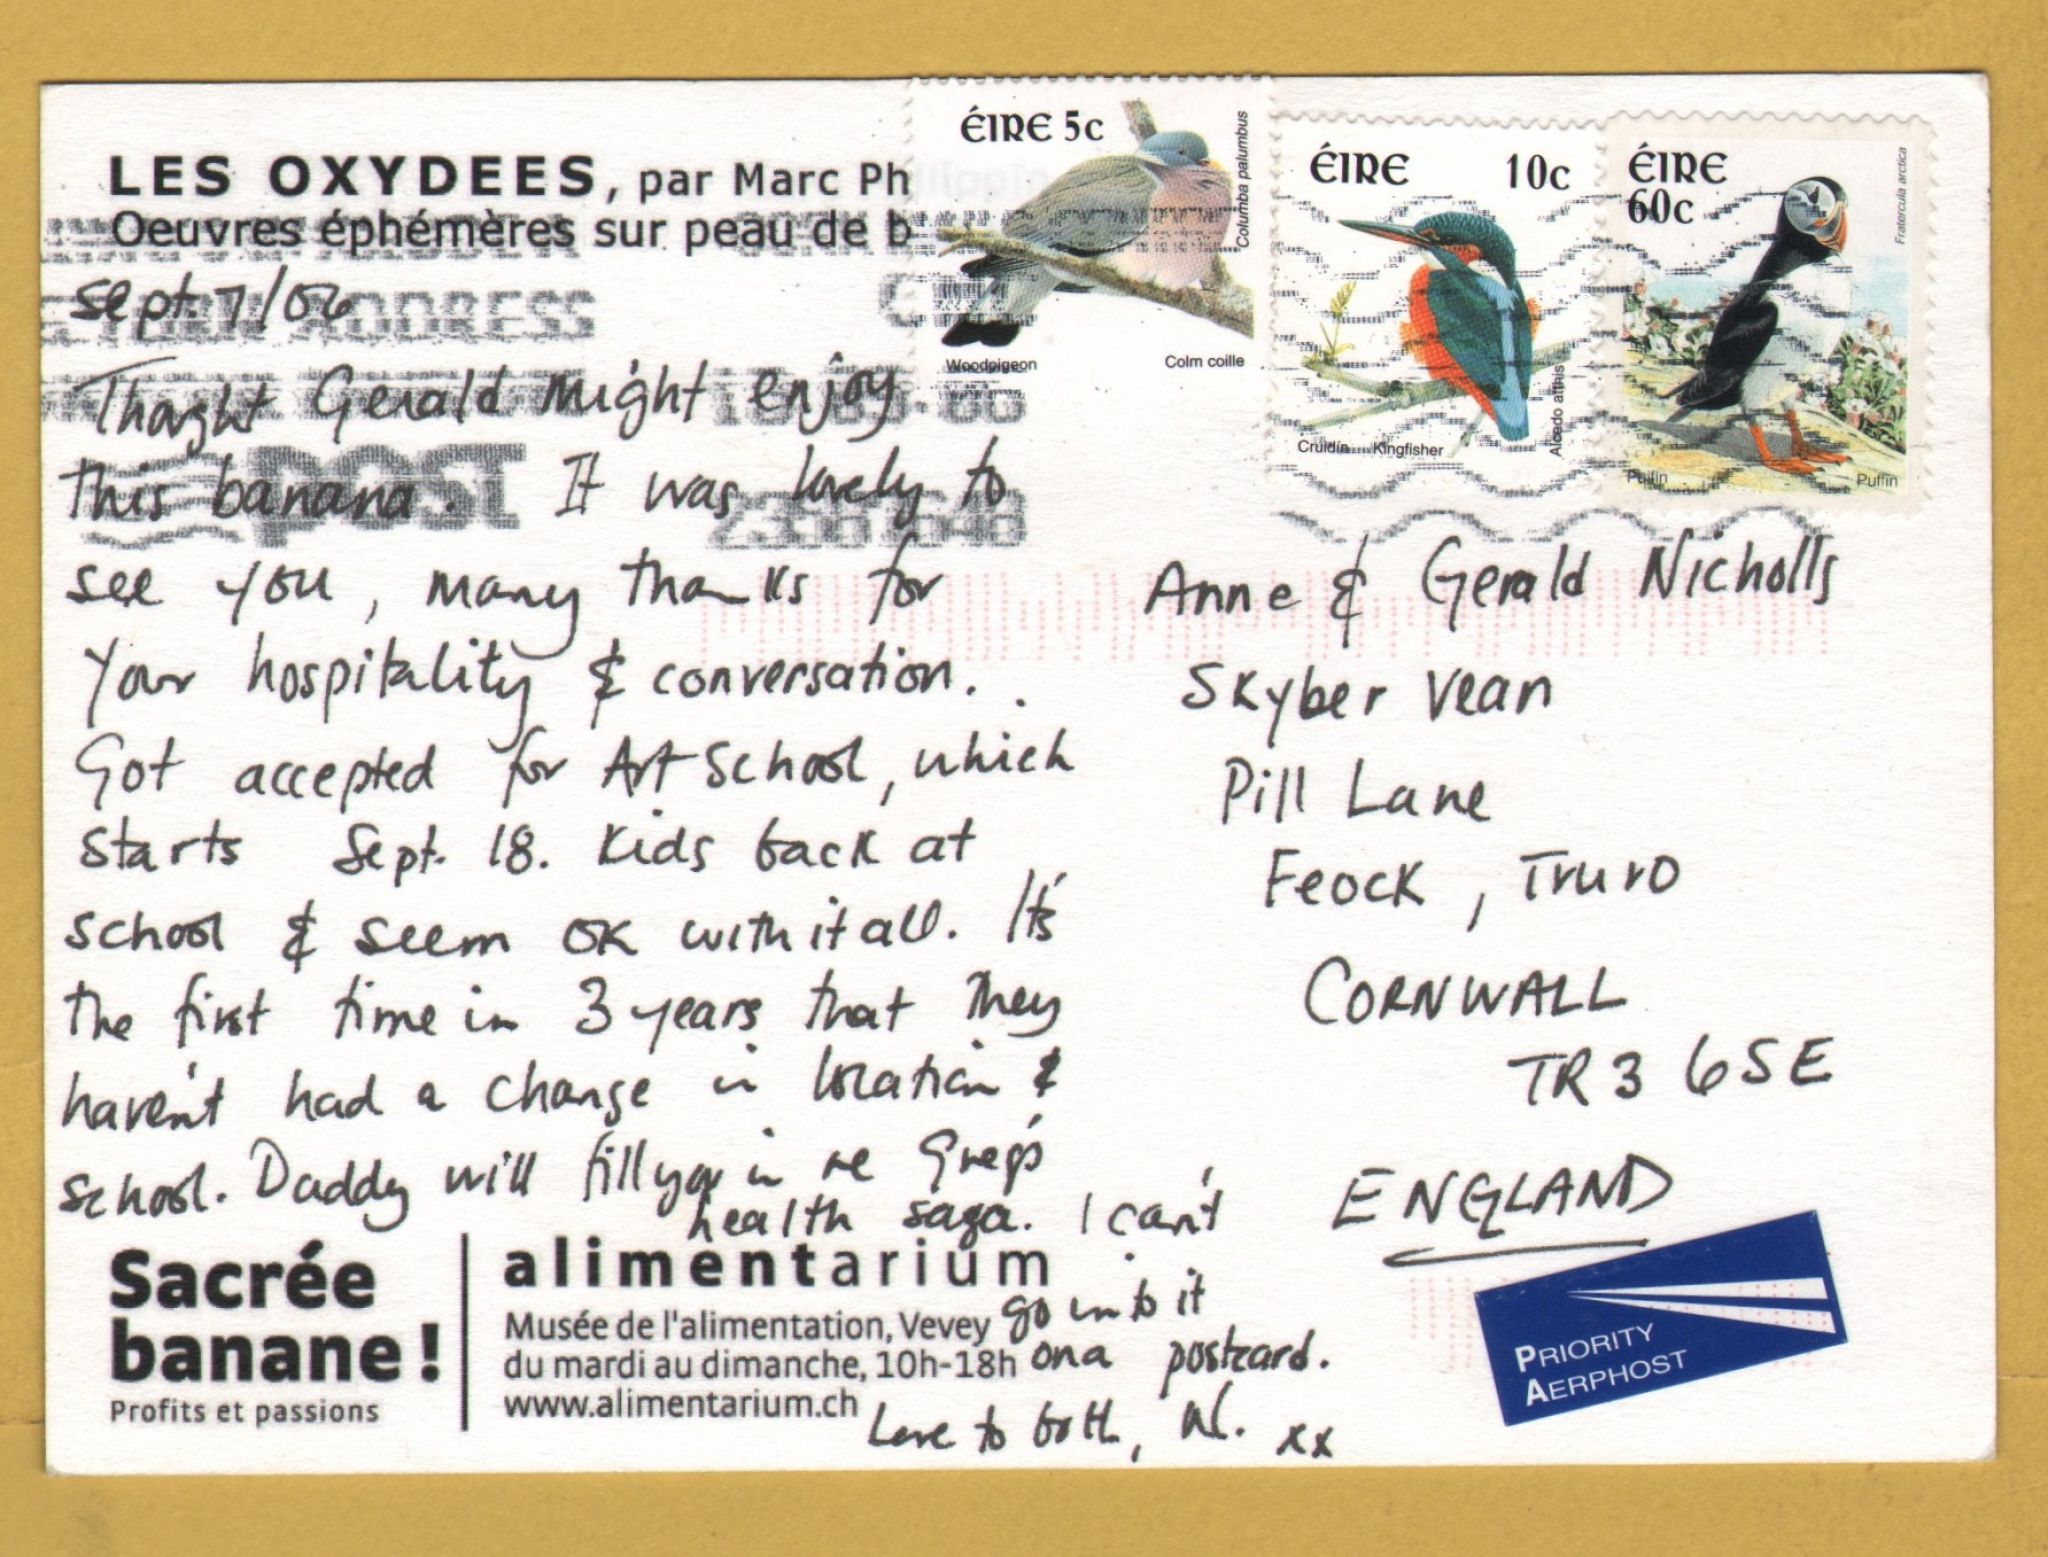 LES OXYDEES, par Marc Ph
Oeuvres éphémères sur peau de b
Sept. 7/06
Thought Gerald might enjoy
this banana. It was lovely to
see you, many thanks for
your hospitality & conversation.
Got accepted for Art School, which
starts Sept. 18. Kids back at
school & seem OK with it all. It's
the first time in 3 years that they
haven't had a change in location &
school. Daddy will fill you in re Greg's
health saga. I can't
go into it
on a postcard.
Love to both, xx
Sacrée
banane!
Profits et passions
alimentarium
Musée de l'alimentation, Vevey
du mardi au dimanche, 10h-18h
www.alimentarium.ch
ÉIRE 5c
Columba palumbus
Woodpigeon Colm coille
ÉIRE 10c
Alcedo atthis
Cruidín Kingfisher
ÉIRE
60c
Fratercula arctica
Puifín Puffin
ADDRESS
POST
Anne & Gerald Nicholls
Skyber Vean
Pill Lane
Feock, Truro
CORNWALL
TR3 6SE
ENGLAND
PRIORITY
AERPHOST